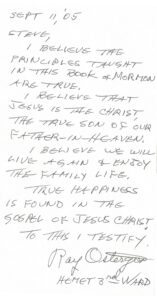 SEPT 11, '05
STEVE,
I BELIEVE THE
PRINCIPLES TAUGHT
IN THIS BOOK of MORMON
ARE TRUE.
I BELIEVE THAT
JESUS IS THE CHRIST,
THE TRUE SON OF OUR
FATHER-IN-HEAVEN.
I BELIEVE WE WILL
LIVE AGAIN & ENJOY
THE FAMILY LIFE.
TRUE HAPPINESS
IS FOUND IN THE
GOSPEL OF JESUS CHRIST!
TO THIS I TESTIFY.
Ray
HEMET 3rd WARD